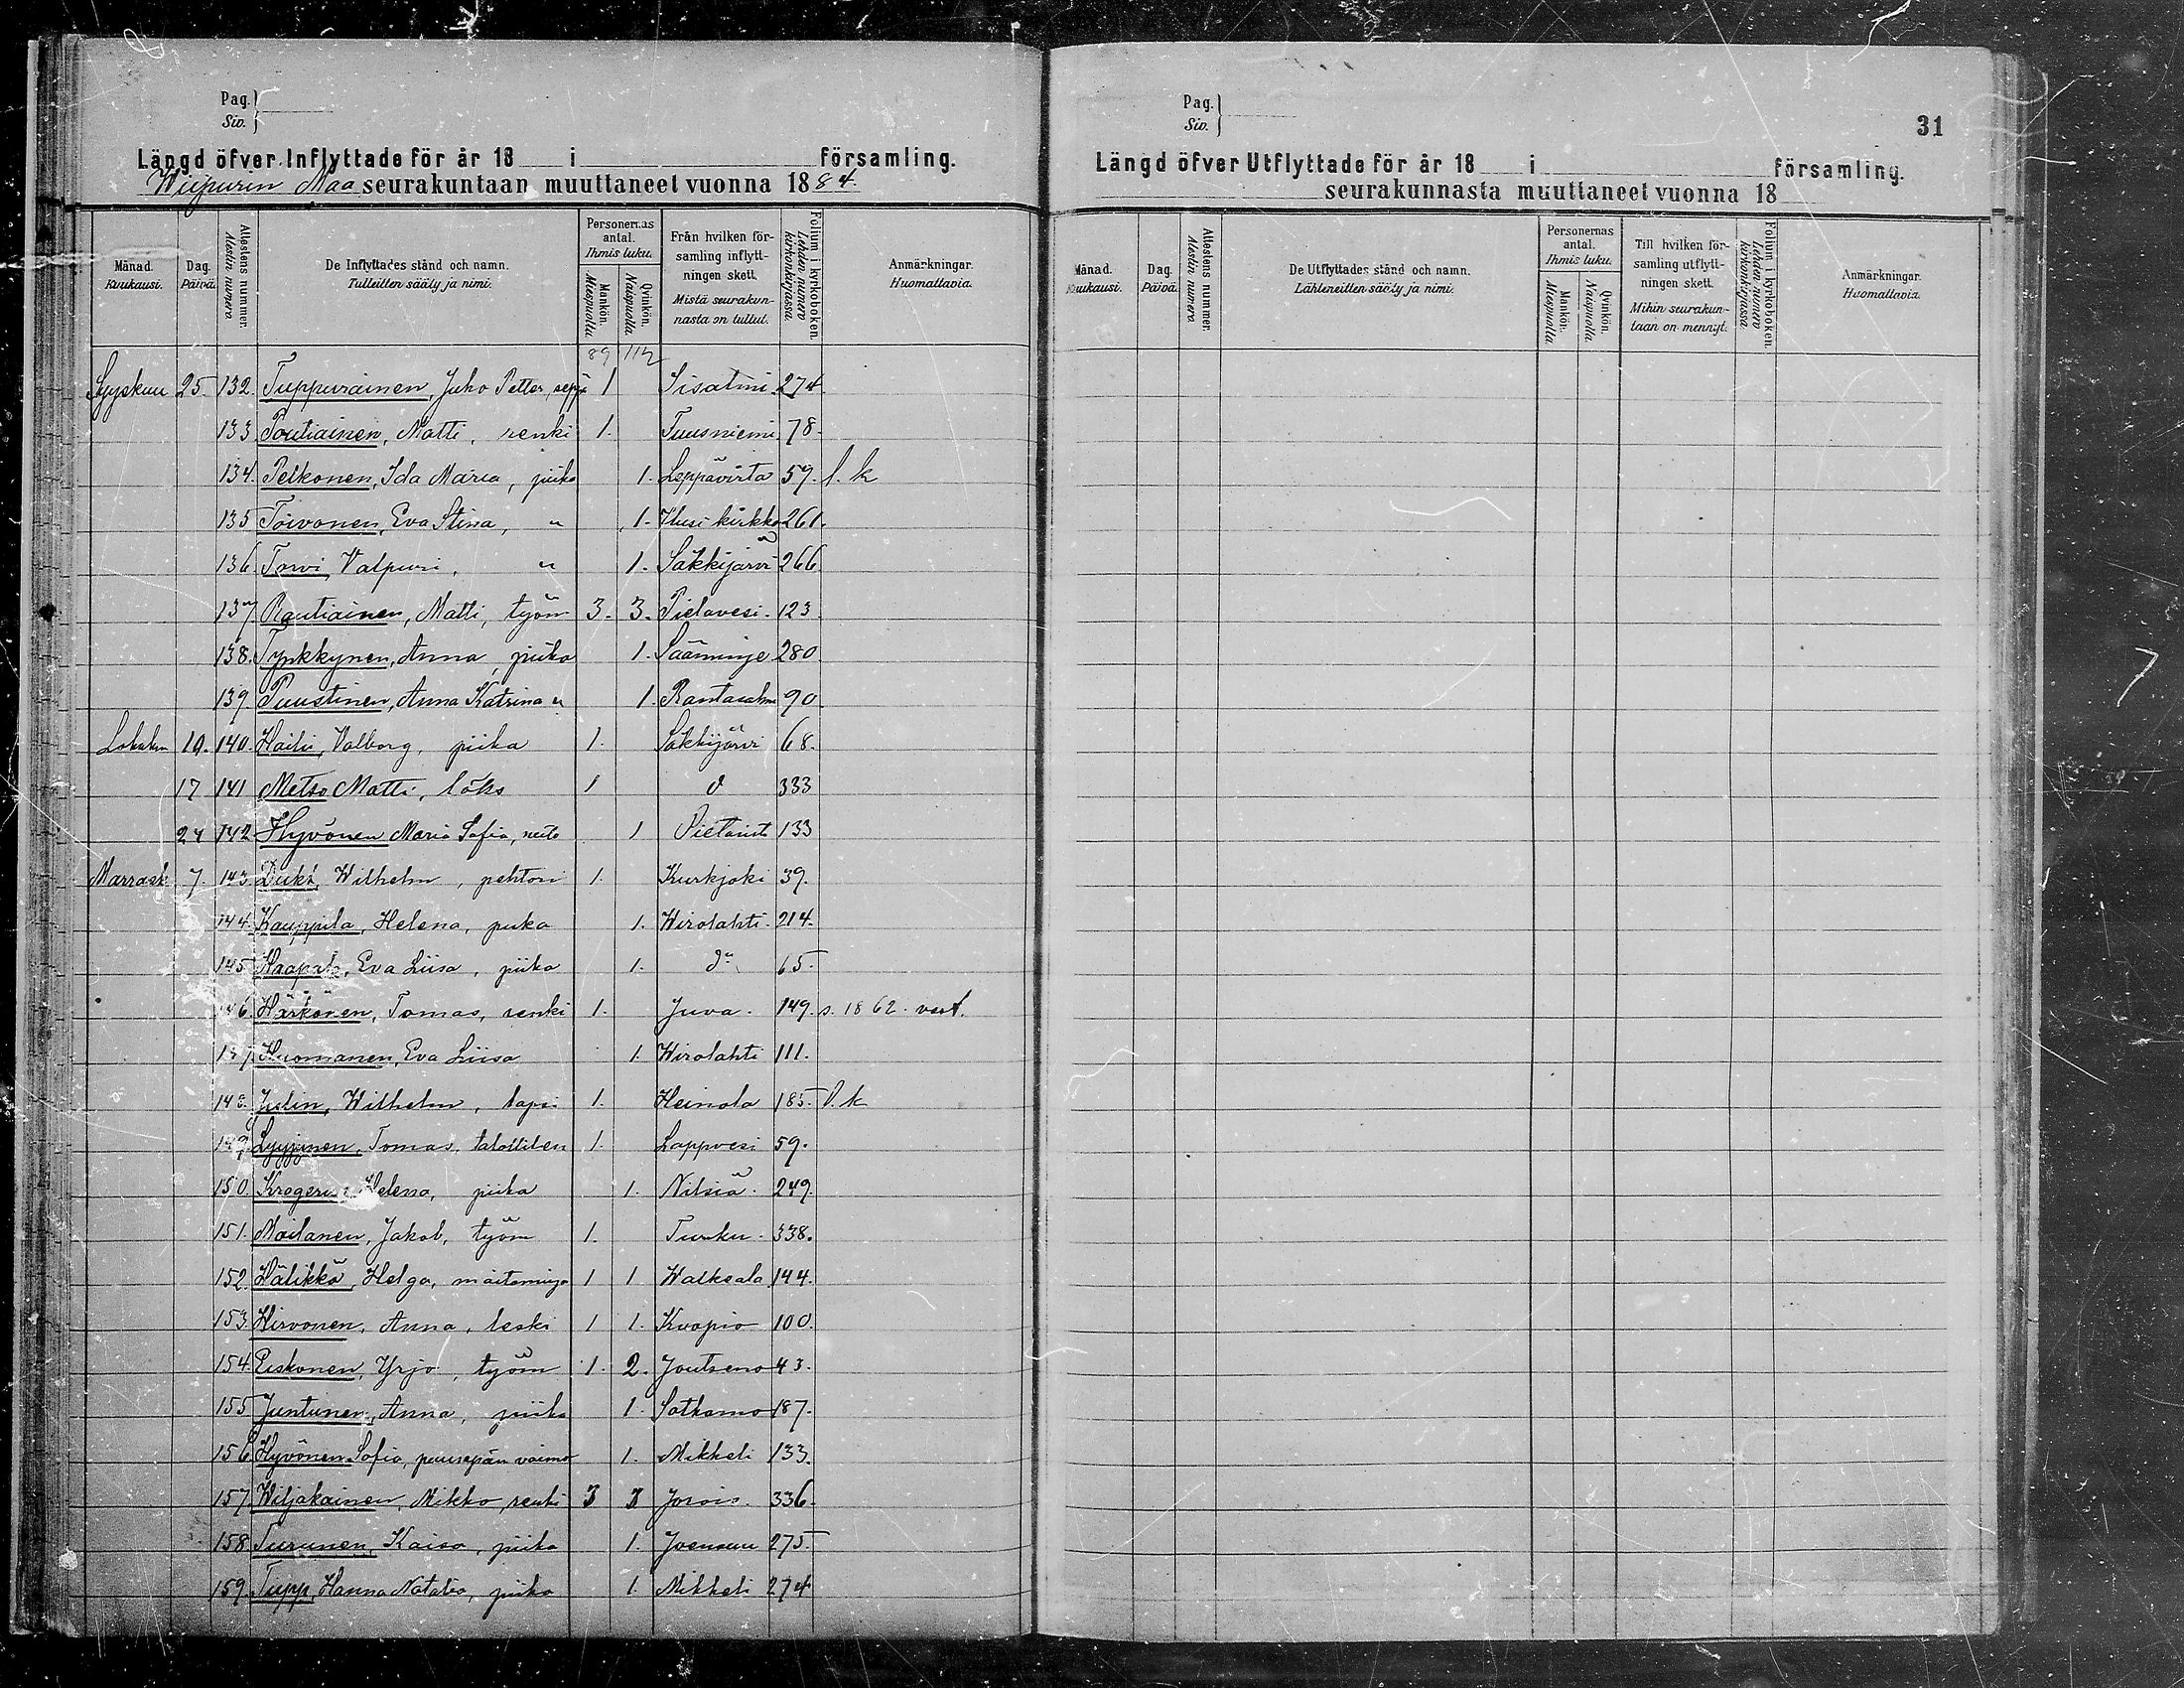 Pag.
Siv.
Längd öfver Inflyttade för år 18 i församling.
Wiipurin Maa seurakuntaan muuttaneet vuonna 1884.
Månad. Kuukausi.
Dag. Päivä.
Attestens nummer. Alestin numero.
De Inflyttades stånd och namn. Tulleitten sääty ja nimi.
Personernas antal. Ihmis luku.
Mankön. Miespuolta.
Qvinkön. Naispuolta.
Från hvilken församling inflyttningen skett. Mistä seurakunnasta on tullut.
Folium i kyrkoboken. Lehden numero kirkonkirjassa.
Anmärkningar. Huomattavia.
89 112
Syyskuu 25. 132. Tuppurainen, Juho Petter, seppä 1 Sisatmi 274.
133 Poutiainen, Matti, renki 1. Tuusniemi 78.
134. Pelkonen, Ida Maria, piika 1. Leppävirta 59. l. k
135 Toivonen, Eva Stina, " 1. Uusi kirkko 261.
136. Torvi, Valpuri, " 1. Säkkijärvi 266.
137 Rautiainen, Matti, työm 3. 3. Pielavesi. 123.
138. Tynkkynen, Anna, piika 1. Sääminge 280.
139. Puustinen, Anna Katrina " 1. Rantasalmi 90.
Lokakuu 10. 140. Haili, Valborg, piika 1. Säkkijärvi 68.
17 141 Metso Matti, löks 1 d 333
24 142 Hyvönen Maria Sofia, neito 1 Pietarist 133
Marrask 7. 143. Wilhelm, pehtori 1. Kurkjoki 39.
144. Kauppila, Helena, piika 1. Wirolahti. 214.
145 Haapala, Eva Liisa, piika 1. do 65.
146. Härkönen, Tomas, renki 1. Juva. 149. s. 1862.
147. Huomanen, Eva Liisa 1. Wirolahti 111.
148. Juslin, Wilhelm, lapsi 1. Heinola 185. l. k
149. Lyyjynen, Tomas, talollinen 1. Lappvesi 59.
150. Helena, piika 1. Nilsiä. 249.
151. Moilanen, Jakob, työm 1. Turku. 338.
152. Hälikkä, Helga, 1 1 Walkeala 144.
153. Hirvonen, Anna, leski 1 1. Kuopio 100.
154. Eiskonen, Yrjo, työm 1. 2. Joutseno 43.
155 Juntunen, Anna, piika 1. Sotkamo 187.
156. Hyvönen Sofia, puusepän vaimo 1. Mikkeli 133.
157. Wiljakainen, Mikko, renki 3 3 Jorois. 336.
158. Turunen, Kaisa, piika 1. Joensuu 275.
159. Tupp, Hanna Natalia, piika 1. Mikkeli 274
Pag.
Siv.
31
Längd öfver Utflyttade för år 18 i församling.
seurakunnasta muuttaneet vuonna 18
Månad. Kuukausi.
Dag. Päivä.
Attestens nummer. Alestin numero.
De Utflyttades stånd och namn. Lähteneitten sääty ja nimi.
Personernas antal. Ihmis luku.
Mankön. Miespuolta
Qvinkön. Naispuolta
Till hvilken församling utflyttningen skett. Mihin seurakuntaan on mennyt.
Folium i kyrkoboken. Lehden numero kirkonkirjassa.
Anmärkningar. Huomattavia.